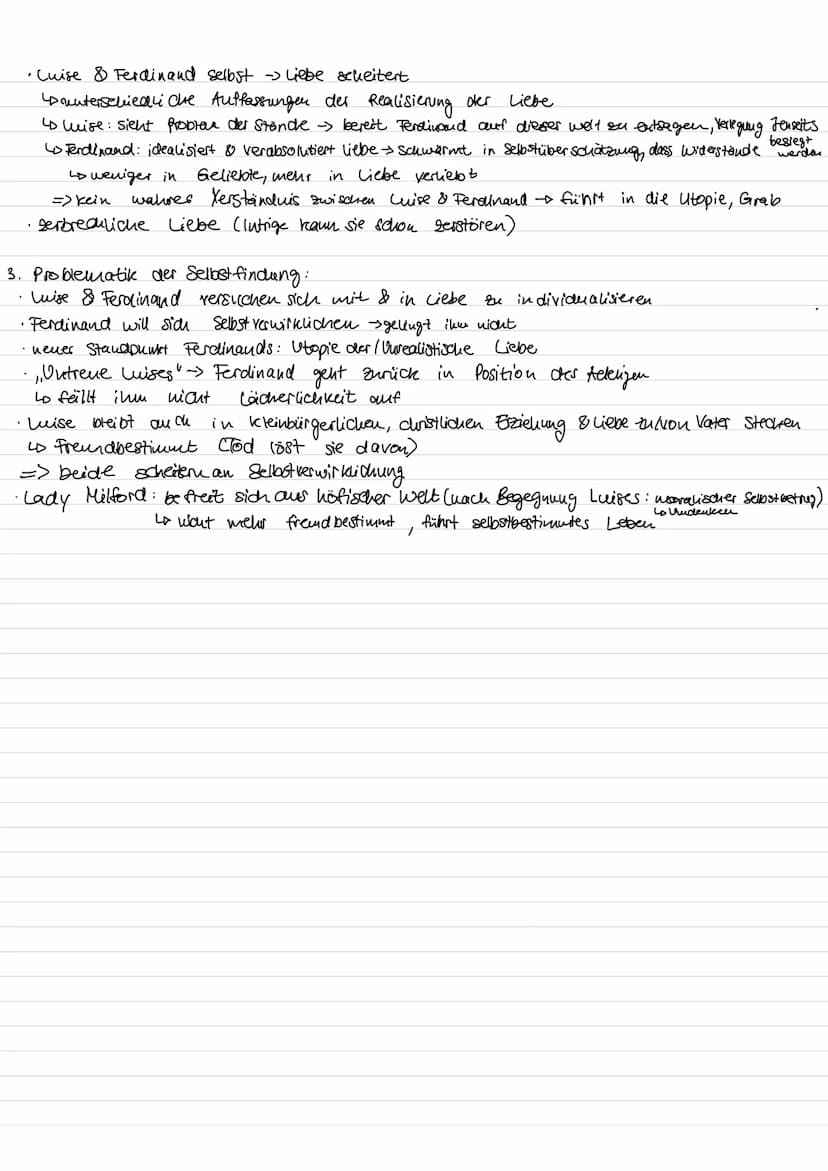 · Luise & Ferdinand selbst -> Liebe scheitert
↳ unterschiedliche Auffassungen der Realisierung der Liebe
↳ Luise: sieht Problem der Stände -> bereit Ferdinand auf dieser Welt zu entsagen, Verlegung Jenseits
↳ Ferdinand: idealisiert & verabsolutiert Liebe -> schwärmt in Selbstüberschätzung, dass Widerstände besiegt werden
↳ weniger in Geliebte, mehr in Liebe verliebt
=> kein wahres Verständnis zwischen Luise & Ferdinand -> führt in die Utopie, Grab
· zerbrechliche Liebe (Intrige kann sie schon zerstören)
3. Problematik der Selbstfindung:
· Luise & Ferdinand versuchen sich mit & in Liebe zu individualisieren
· Ferdinand will sich selbst verwirklichen -> gelingt ihm nicht
· neuer Standpunkt Ferdinands: Utopie der/Unrealistische Liebe
· „Untreue Luises" -> Ferdinand geht zurück in Position des Adeligen
↳ fällt ihm nicht Lächerlichkeit auf
· Luise bleibt auch in kleinbürgerlichen, christlichen Erziehung & Liebe zu/von Vater stecken
↳ Fremdbestimmt (Tod löst sie davon)
=> beide scheitern an Selbstverwirklichung
· Lady Milford: befreit sich aus höfischer Welt (nach Begegnung Luises: moralischer Selbstbetrug)
↳ Umdenken
↳ nicht mehr fremdbestimmt, führt selbstbestimmtes Leben